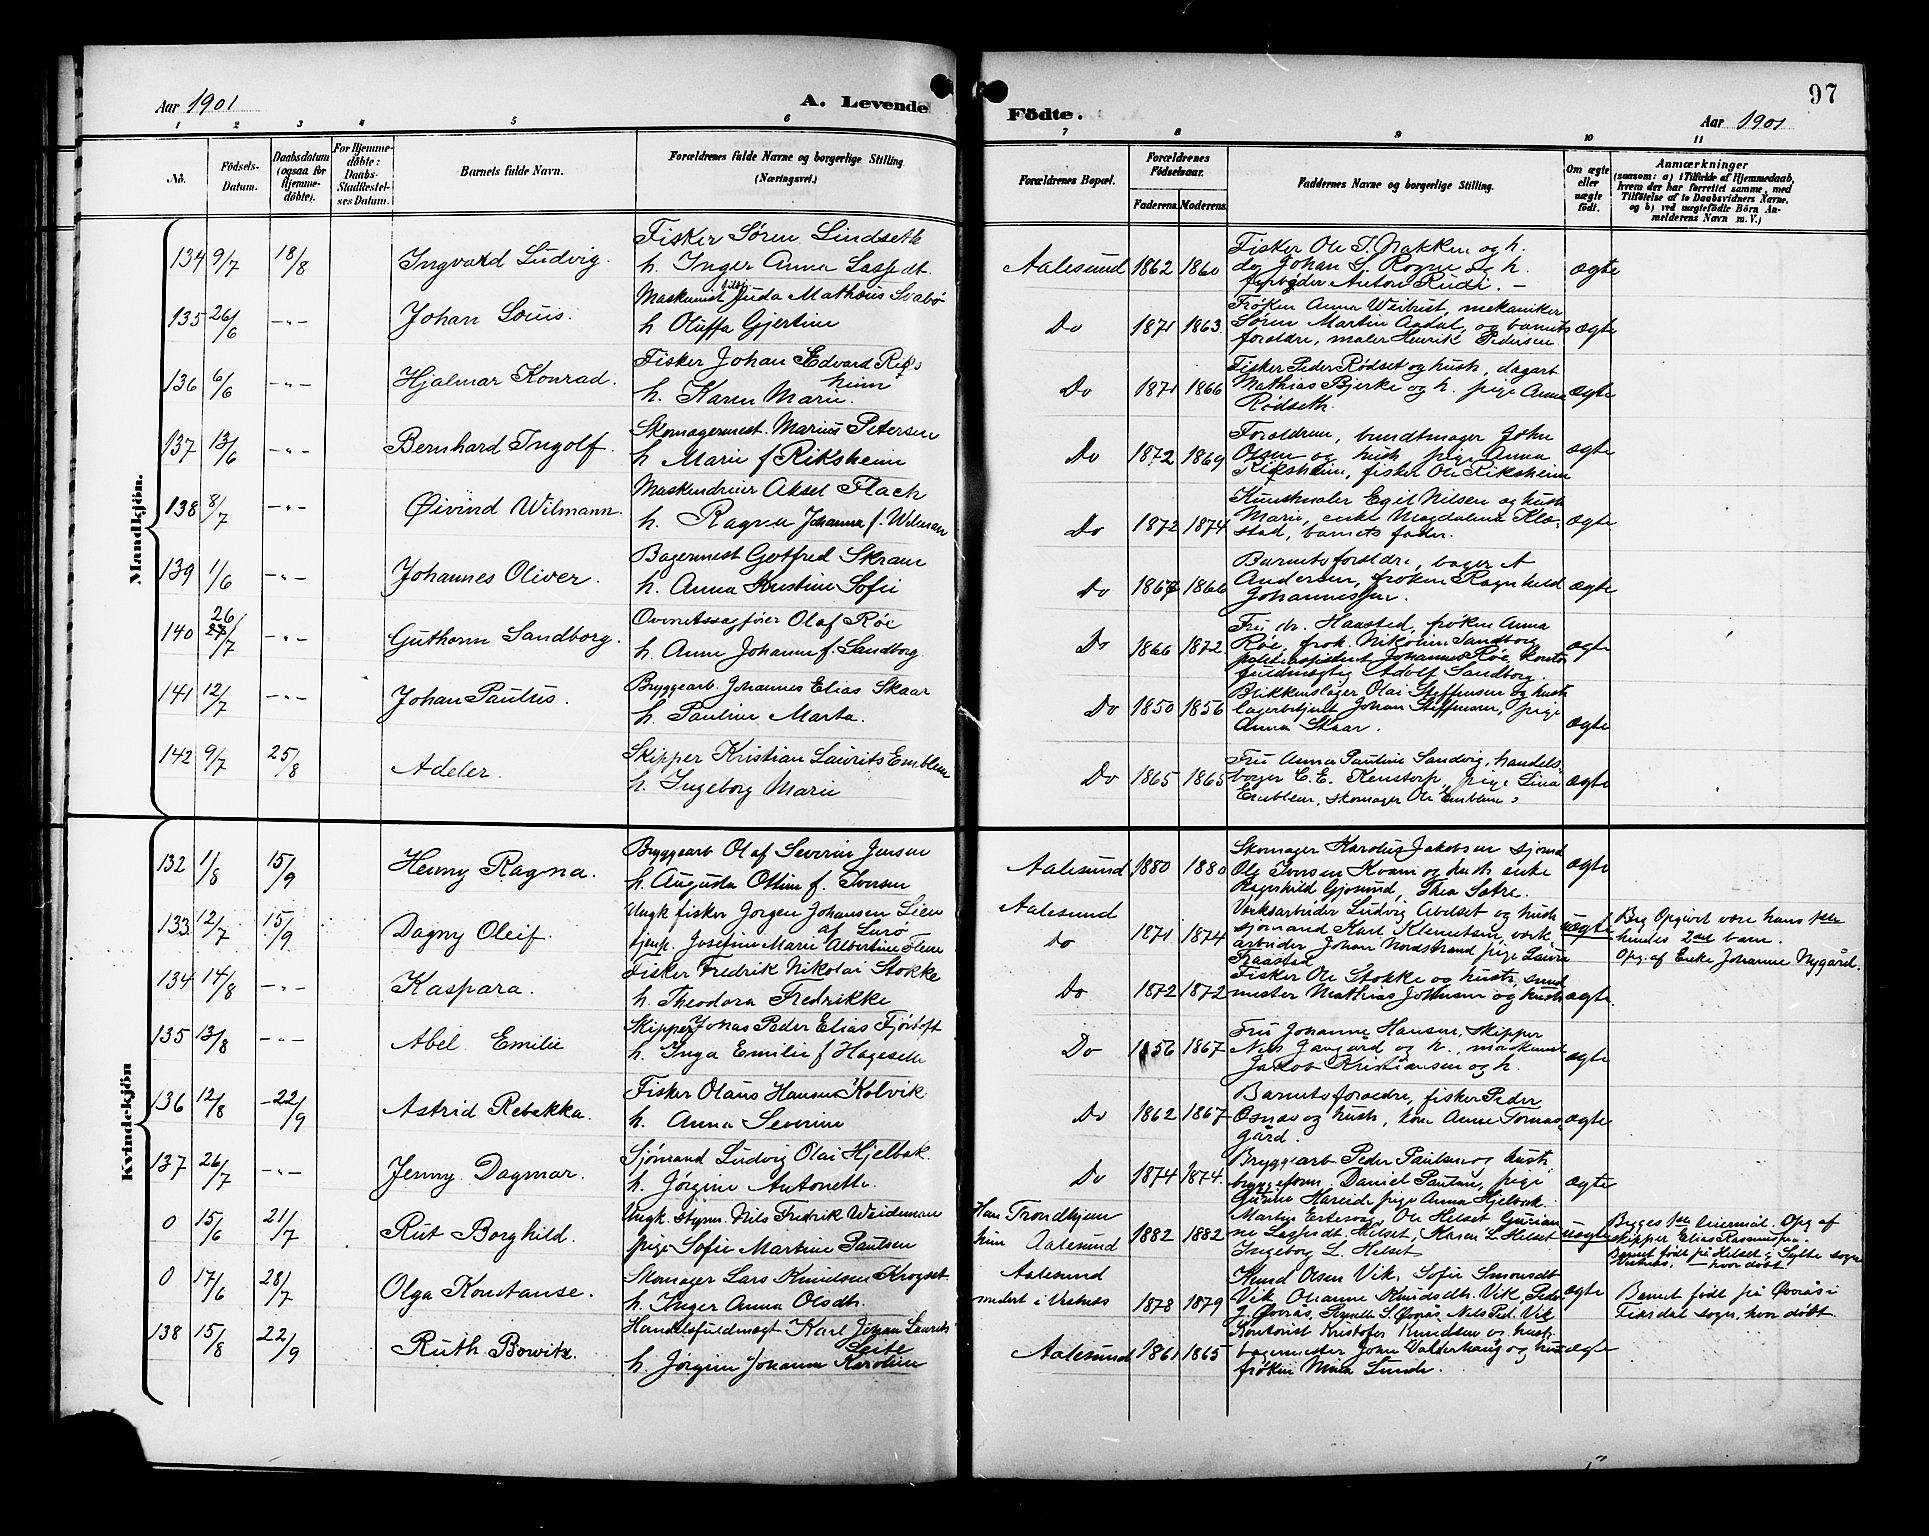 Aar 1901
A. Levende
Födte.
97
Aar 1901
1 2 3 4 5 6 7 8 9 10 11
No.
Födsels-
Datum.
Daabsdatum
(ogsaa for
Hjemme-
döbte).
For Hjemme-
döbte:
Daabs-
Stadfæstel-
ses Datum.
Barnets fulde Navn.
Forældrenes fulde Navne og borgerlige Stilling
(Næringsvei.)
Forældrenes Bopæl.
Forældrenes
Födselsaar.
Faderens. Moderens.
Faddernes Navne og borgerlige Stilling.
Om ægte
eller
uægte
födt.
Anmærkninger
(saasom: a) i Tilfælde af Hjemmedaab,
hvem der har forrettet samme, med
Tilföielse af to Daabsvidners Navne,
og b) ved uægtefödte Börn An-
melderens Navn m. V.)
Mandkjön.
134 9/7 18/8 Ingvald Ludvig.
Fisker Søren Lindseth
h. Inger Anna Laspdt.
Aalesund 1862 1860
Fisker Ole T. Nakken og h.
do Johan S. Rogne og h.
Anton Rudi. -
ægte
135 26/6 -"- Johan Louis.
Maskinist Juda Mathæus Svabø
h Oluffa Gjertine
Do 1871 1863.
Frøken Anna Weibust, mekaniker
Søren Martin Aadal, og barnets
foraldre, maler Henrik Pedersen
ægte
136 6/6 -"- Hjalmar Konrad.
Fisker Johan Edvard Riks
heim
h. Karen Marie.
Do 1871 1866
Fisker Peder Rødset og hustr, dagarb
Mathias Bjerke og h. pige Anna
Rødseth.
ægte
137 13/6 -"- Bernhard Ingolf.
Skomagermest. Marius Petersen
h Marie f Riksheim
Do 1872 1869
Foraldrene, bundtmager John
Olsen og hustr, pige Anna
Riksheim, fisker Ole Riksheim
ægte
138 8/7 -"- Øivind Wilmann.
Maskendreier Aksel Flach
h. Ragna Johanna f. Wilmann
Do 1872 1874
Kunstmaler Egil Nilsen og hustr
Marie, enke Magdalena Klo-
stad, barnets fader.
ægte
139 1/6 -"- Johannes Oliver.
Bagermest Gotfred Skram
h. Anna Kristine Sofie
Do 1867 1866
Barnets foraldre, bager A
Andersen, frøken Ragnhild
Johannessen.
ægte
140 26/7 -"- Guthorm Sandborg.
Overretssagfører Olaf Røe
h. Anne Johanne f. Sandborg.
Do 1866 1872
Fru dr. Hansted, frøken Anna
Røe, frøk. Nikoline Sandborg
politiassistent Johannes Røe, Kontor
fuldmægtig Adolf Sandborg.
ægte
141 12/7 -"- Johan Paulus.
Bryggearb. Johannes Elias Skaar
h. Pauline Marta.
Do 1850 1856
Blikkenslager Olai Steffensen og hustr
lagerbetjent Johan Steffensen, pige
Anna Skaar.
ægte
142 9/7 25/8 Adeler.
Skipper Kristian Laurits Emblem
h. Ingeborg Marie
Do 1865 1865
Fru Anna Pauline Sandvig, handels-
borger C. E. Kenstorp, pige Lina
Emblem, skomager Ole Emblem,
ægte
Kvindekjön
132 1/8 15/9 Henny Ragna.
Bryggearb Olaf Severin Jensen
h. Augusta Ottine f. Iversen
Aalesund 1880 1880
Skomager Karolus Jakobsen sjømd
Ole Iversen Kvam og hustr enke
Ragnhild Gjøsund, Thea Sætre.
ægte
133. 12/7 15/9 Dagny Oleif.
Ungk fisker Jørgen Johansen Lien
af Surø
tjenp. Josefine Marie Albertine Flem
Aalesund
Do 1871 1874
Værksarbeider Ludvig Abelset og hustr
sjømand Karl Klemetsen, værk
arbeider Johan Nordstrand, pige Laura
Raastad
uægte
Beg Opgivet være hans 1ste
hendes 2det barn.
Opg. af Enke Johanne Nygård.
134 14/8 -"- Kaspara.
Fisker Fredrik Nikolai Stokke
h. Theodora Fredrikke
Do 1872 1872
Fisker Ole Stokke og hustr, smed
mester Mathias Johnsen og hustr
ægte.
135 13/8 -"- Abel Emilie
Skipper Jonas Peder Elias Fjørtoft
h. Inga Emilie f Hageseth
Do 1856 1867
Fru Johanne Hansen, skipper
Nils Gangård og h., maskinist
Jakob Kristiansen og h.
ægte
136 12/8 -22/9 Astrid Rebekka.
Fisker Olaus Hansen Kolvik
h. Anna Severine
Do 1862 1867
Barnets foraldre, fisker Peder
Osnæs og hustr, kone Anne Tomas-
gård.
ægte
137 26/7 -"- Jenny Dagmar.
Sjømand Ludvig Olai Hjelbak
h. Jørgine Antonette.
Do 1874 1874.
Bryggearb Peder Paulsen og hustr
bryggeform. Daniel Paulsen, pige
Gurine Hareide pige Anna Hjelbak.
ægte
0 15/6 21/7 Rut Borghild.
Ungk. styrm. Nils Fredrik Weideman
pige Sofie Martine Paulsen
Han Trondhjem
hun Aalesund 1882 1882
Martin Ertesvåg, Ole Helset Gurian-
ne Laspdt, Helset, Karen L Helset
Ingeborg L. Helset
uægte
Begges 1ste leiermål. Opg af
skipper Elias Rasmussen.
Barnet født på Helset i Sylte sogn
Vestnæs, - hvor døbt.
0 17/6 28/7 Olga Konstanse.
Skomager Lars Knudsen Krogset.
h. Inger Anna Olsdtr.
Aalesund
i Vestnæs 1878 1879
Knud Olsen Vik, Sofie Simonsdt
Vik, Olianne Knudsdtr. Vik, Peder
J. Øvrås, S. Øvrås, Nels Ped. Vik
ægte
Barnet født på Øvrås i
Fiksdal sogn, hvor døbt
138 15/8 22/9 Ruth Bowitz.
Handelsfuldmægt Karl Johan Laurits
Leite
h. Jørgine Johanna Karoline
Aalesund 1861 1865
Kontorist Kristofer Knudsen og hustr.
bagermester John Valderhaug og hus
frøken Mina Lunde.
ægte